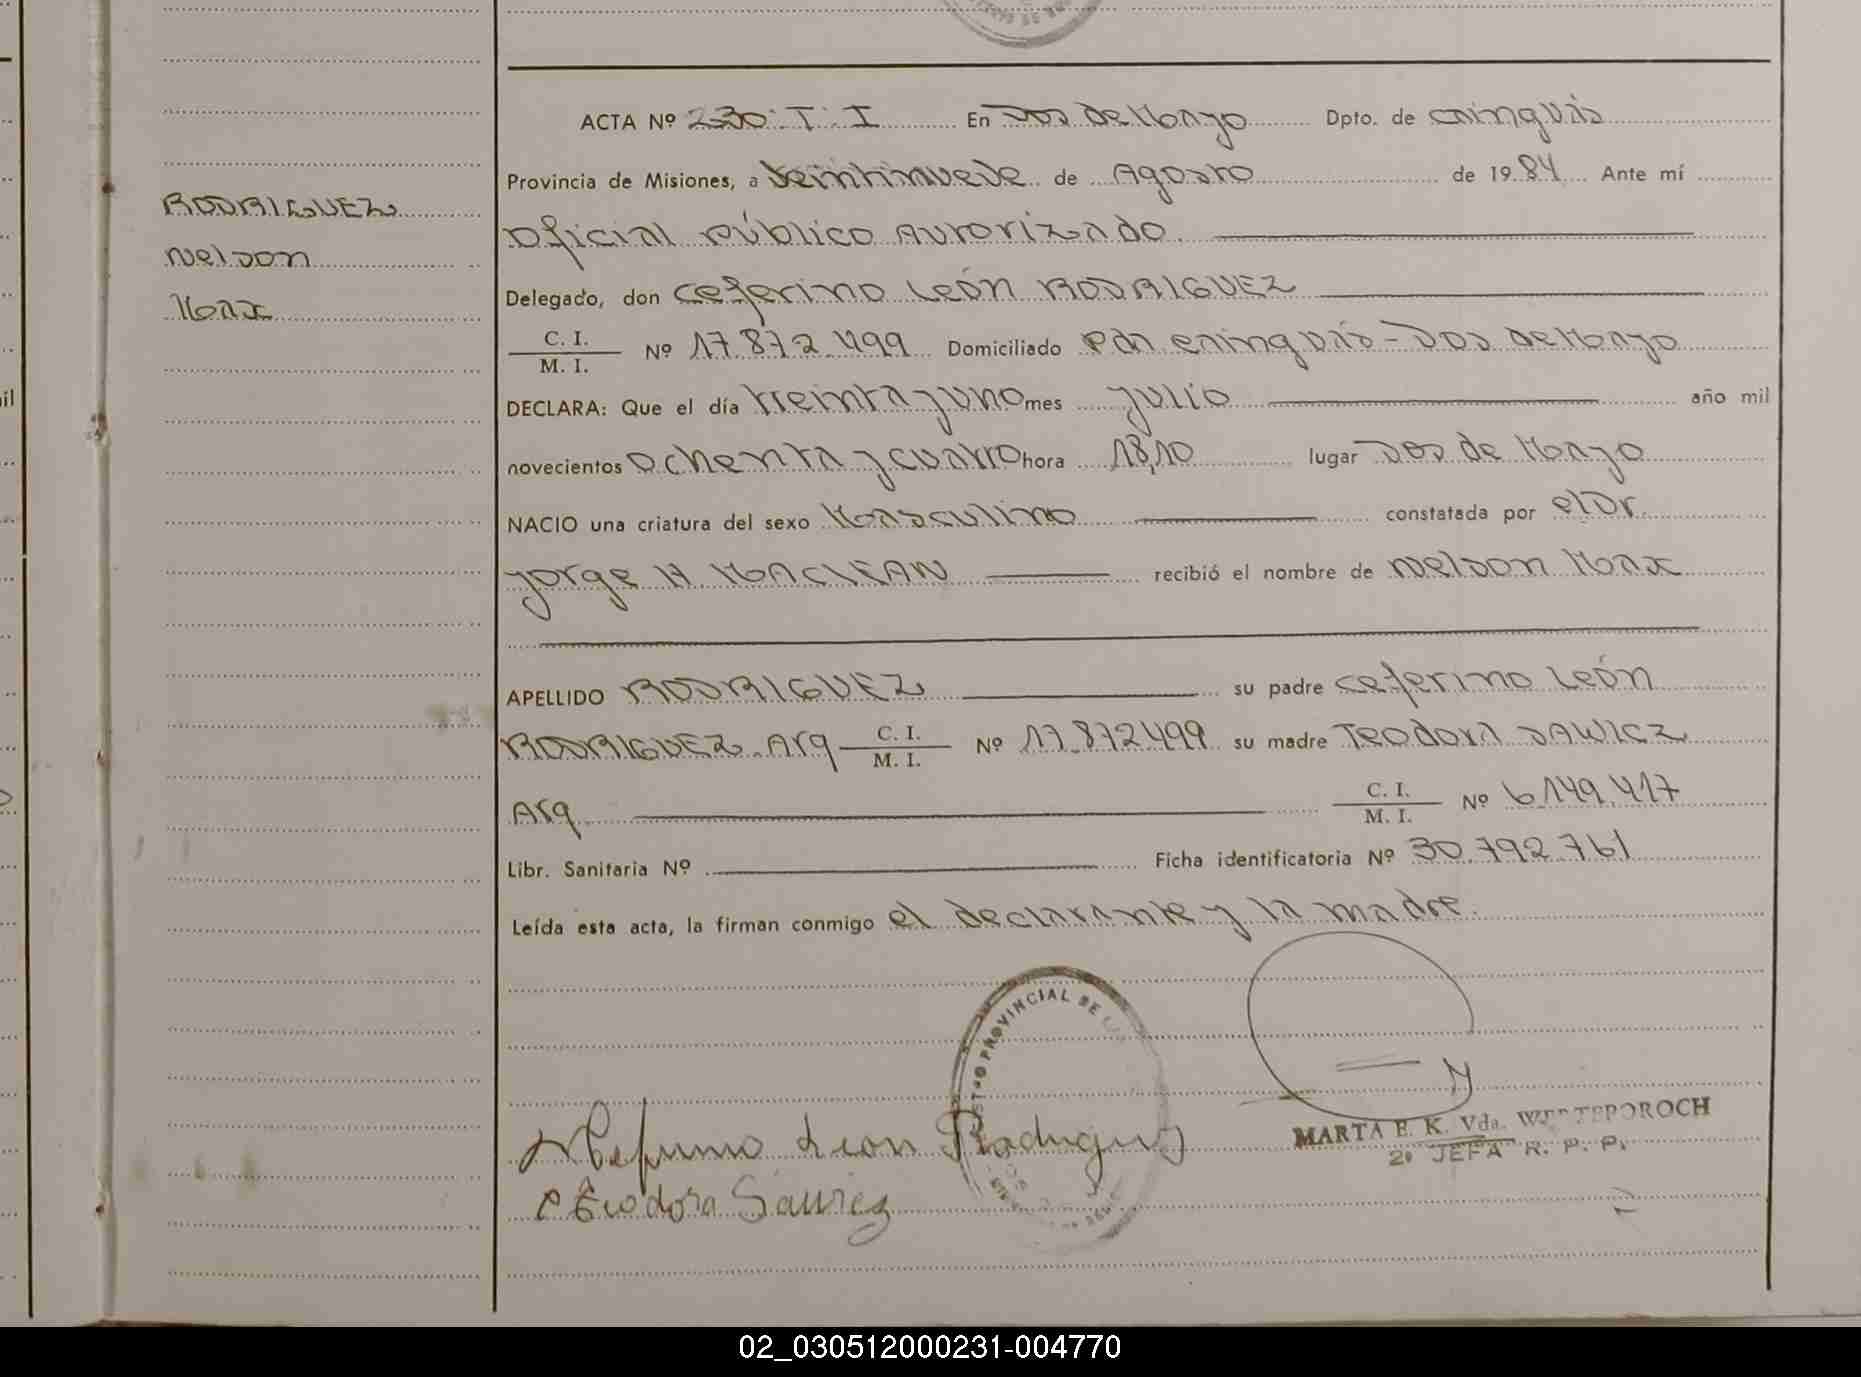 ACTA Nº 230. T. I En Dos de Mayo Dpto. de Cainguás
Provincia de Misiones, a veintinueve de Agosto de 1984 Ante mí
RODRIGUEZ
Oficial Público Autorizado.
Nelson
Delegado, don Ceferino León RODRIGUEZ
Max
C. I.
M. I. Nº 17.872.499 Domiciliado Pdn Cainguás - Dos de Mayo
DECLARA: Que el día treinta y uno mes julio año mil
novecientos ochenta y cuatro hora 18,10 lugar Dos de Mayo
NACIO una criatura del sexo Masculino constatada por el Dr.
Jorge H. MACLEAN recibió el nombre de Nelson Max
APELLIDO RODRIGUEZ su padre Ceferino León
RODRIGUEZ. Arg C. I.
M. I. Nº 17.872.499 su madre Teodora SAWICZ
Arg C. I.
M. I. Nº 6.149.417
Libr. Sanitaria Nº Ficha identificatoria Nº 30.792.761
Leída esta acta, la firman conmigo el declarante y la madre.
PROVINCIAL DE
Leon Rodriguez
MARTA E. K. Vda.
2º JEFA R. P. P.
Teodora Sawicz
02_030512000231-004770